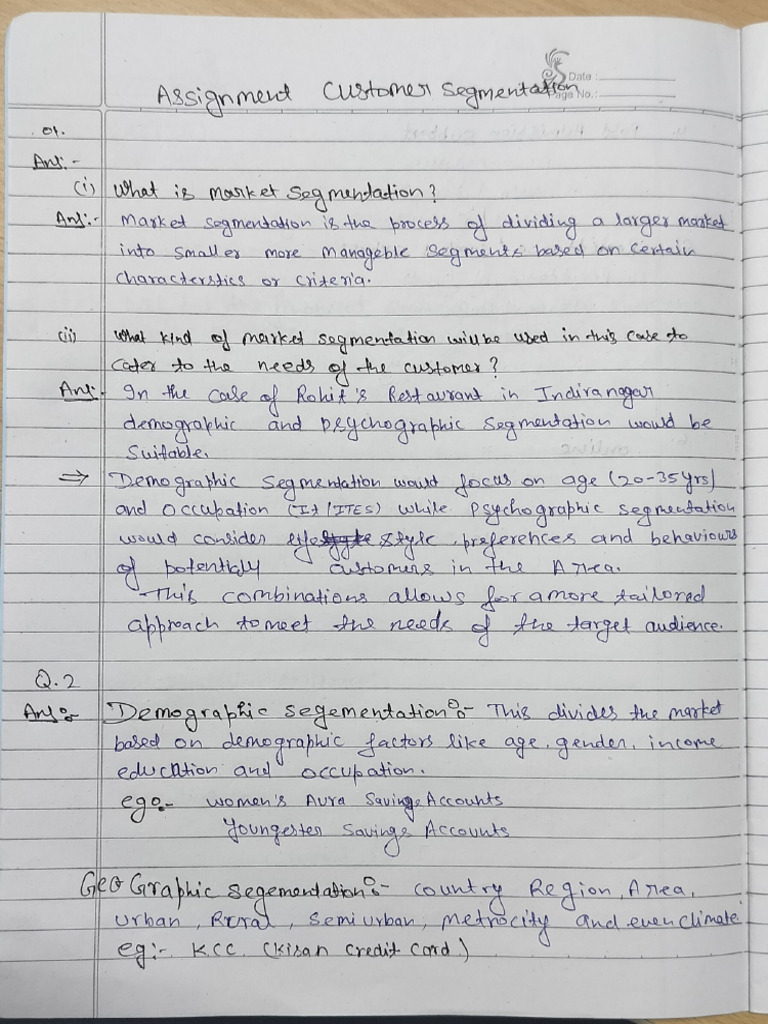 Date :
Page No.:
Assignment Customer Segmentation
01.
Ans:-
(i) What is market segmendation?
Ans:- Market segmendation is the process of dividing a larger market
into smaller more manageble segments based on certain
characterstics or criteria.
(ii) What kind of market segmendation will be used in this case to
cater to the needs of the customer?
Ans:- In the case of Rohit's Restaurant in Indiranagar
demographic and psychographic segmentation would be
suitable.
⇒ Demographic segmentation would focus on age (20-35 yrs)
and occupation (It/ITES) while psychographic segmentation
would consider life style, preferences and behaviours
of potentialy customers in the Area.
- This combinations allows for a more tailored
approach to meet the needs of the target audience.
Q.2
Ans:- Demographic segementation:- This divides the market
based on demographic factors like age, gender, income
education and occupation.
eg:- women's Aura Savings Accounts
Youngester Savings Accounts
GeoGraphic segementation:- country Region, Area,
urban, Rural, Semiurban, Metrocity and even climate
eg:- KCC (Kisan Credit Card)